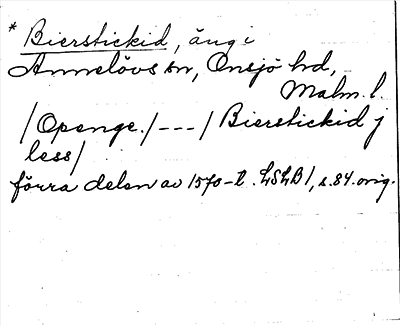 * Bierstickid, äng i
Annelövs sn, Onsjö hd,
Malm. l.
/Openge./---/Bierstickid j
less/
förra delen av 1570-t. LSLB1, s. 84. orig.